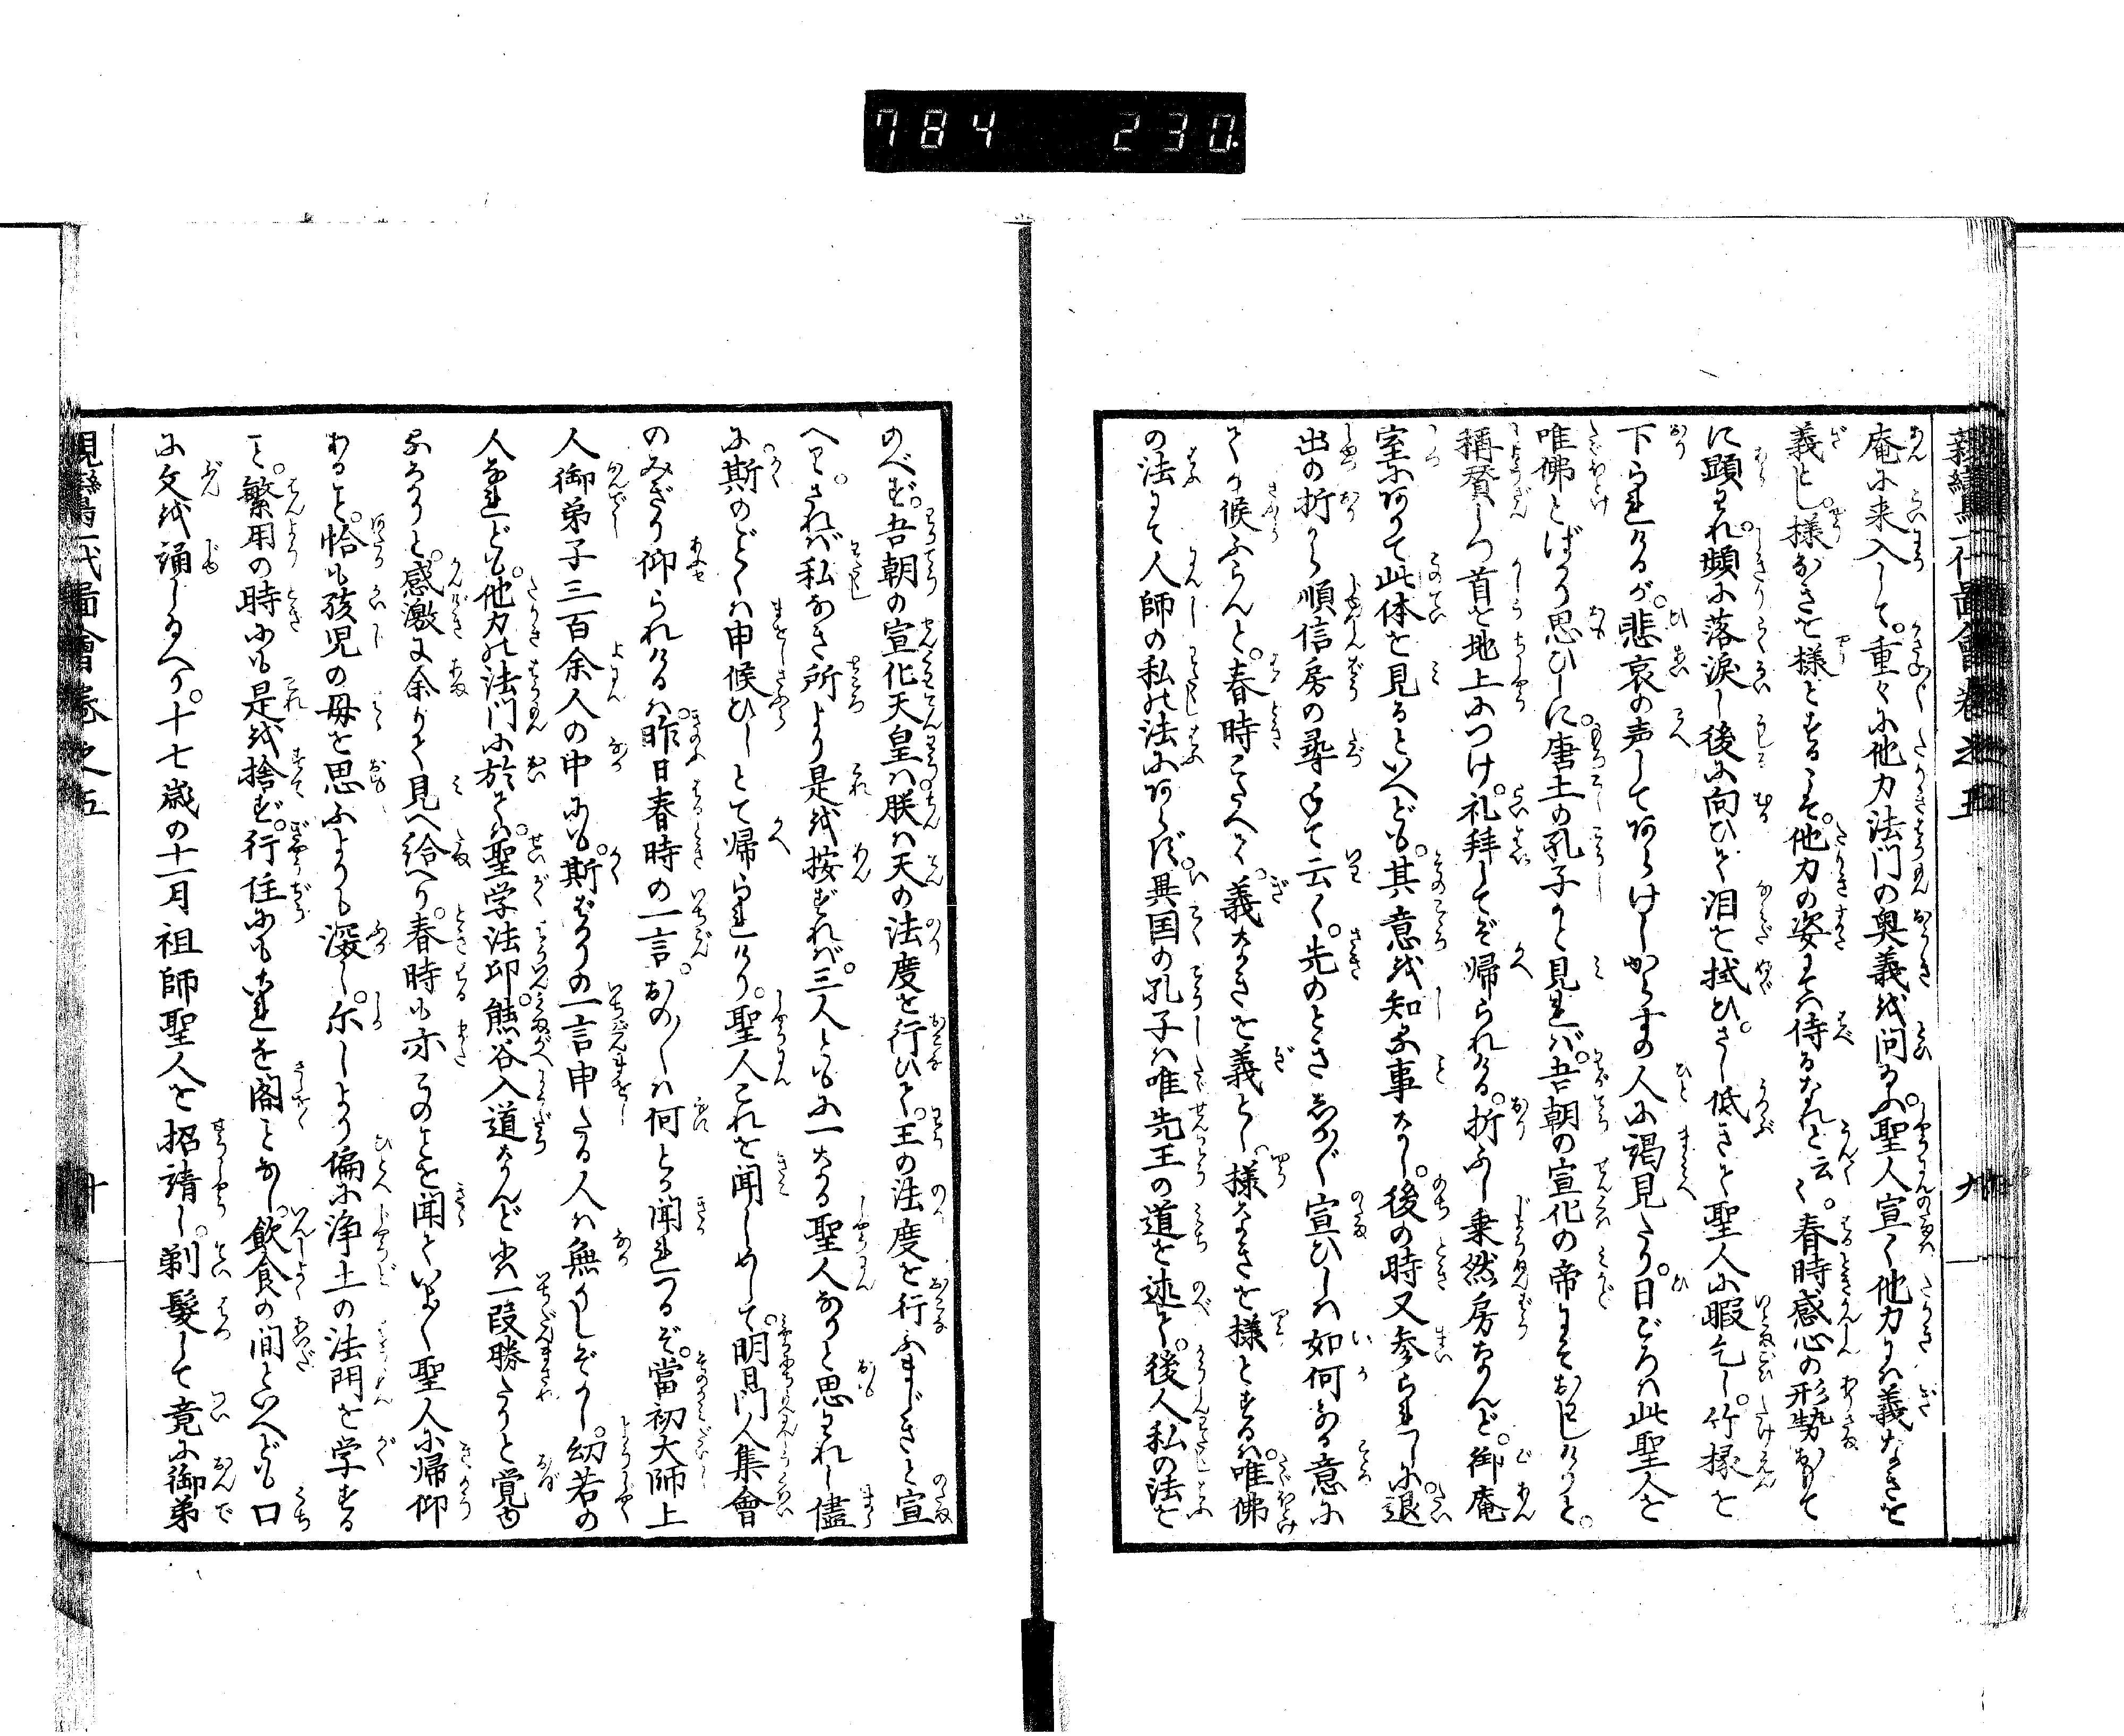 784 230.
親鸞聖人一代圖會巻之五 九
庵に来入して。重々に他力法門の奥義を問ふ。聖人宣く他力には義なきを
義とし。様なきを様とするこそ。他力の姿にては侍るなれと云々。春時感心の形勢ありて
に顕はれ。頻に落涙し後に向ひて泪を拭ひ。さし低きて聖人に暇乞し。竹椽を
下られけるが。悲哀の声してあらけしからずの人に謁見たり。日ごろは此聖人を
唯佛とばかり思ひしに。唐土の孔子かと見れば。吾朝の宣化の帝にておはしけりと。
稱賛しつ首を地上につけ。礼拝してぞ帰られける。折ふし乗然房なんど。御庵
室にありて此体を見るといへども。其意を知る事なし。後の時又参られしに退
出の折から順信房の尋ねて云く。先のときあながち宣ひしは如何なる意に
てか候ふらんと。春時こたへて。義なきを義とし。様なきを様とするは。唯佛
の法にて人師の私の法にあらず。異国の孔子は唯先王の道を述て。後人私の法を
のべず。吾朝の宣化天皇は朕は天の法度を行ひて。王の法度を行ふまじきと宣
へり。されば私なき所より是を按ずれば。三人ともに一なる聖人なりと思はれし儘
に斯のごとくは申候ひしとて帰られけり。聖人これを聞しめして。明日門人集會
のみぎり仰られけるは。昨日春時の一言。おの〱は何とか聞れつるぞ。當初大師上
人御弟子三百余人の中にも。斯ばかりの一言申たる人は無りしぞかし。幼若の
人なれども。他力の法門に於ては。聖学法印。熊谷入道なんどには一段勝たりと覚ゆ
るなりと。感激に余りて見へ給へり。春時も亦このことを聞ていよ〱聖人に帰仰
あること。恰も孩児の母を思ふよりも深し。尓しより偏に浄土の法門を学する
こと。繁用の時にも是を捨ず。行住にもこれを閣ことなし。飲食の間といへども口
に文を誦し給へり。十七歳の十一月祖師聖人を招請し。剃髪して竟に御弟
親鸞聖人一代圖會巻之五 十